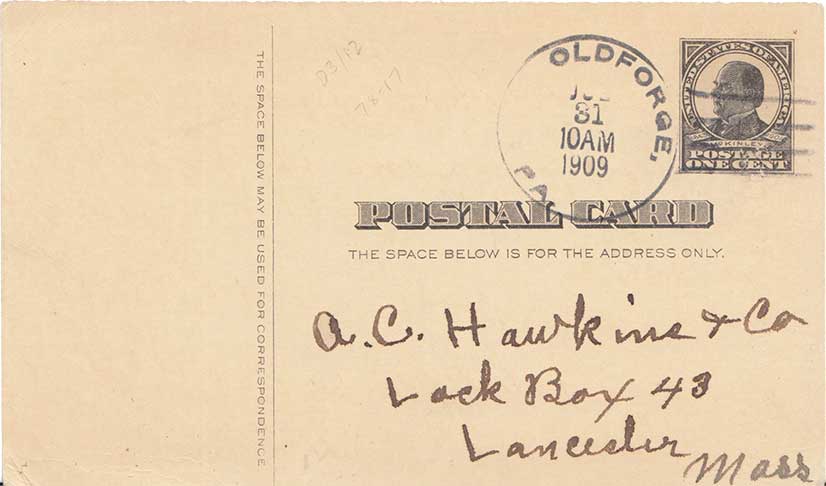 D3/12
78-17
OLDFORGE,
JUL
31
10AM
1909
PA.
UNITED STATES OF AMERICA
McKINLEY
POSTAGE
ONE CENT
POSTAL CARD
THE SPACE BELOW IS FOR THE ADDRESS ONLY.
THE SPACE BELOW MAY BE USED FOR CORRESPONDENCE.
A. C. Hawkins & Co
Lock Box 43
Lancester
Mass